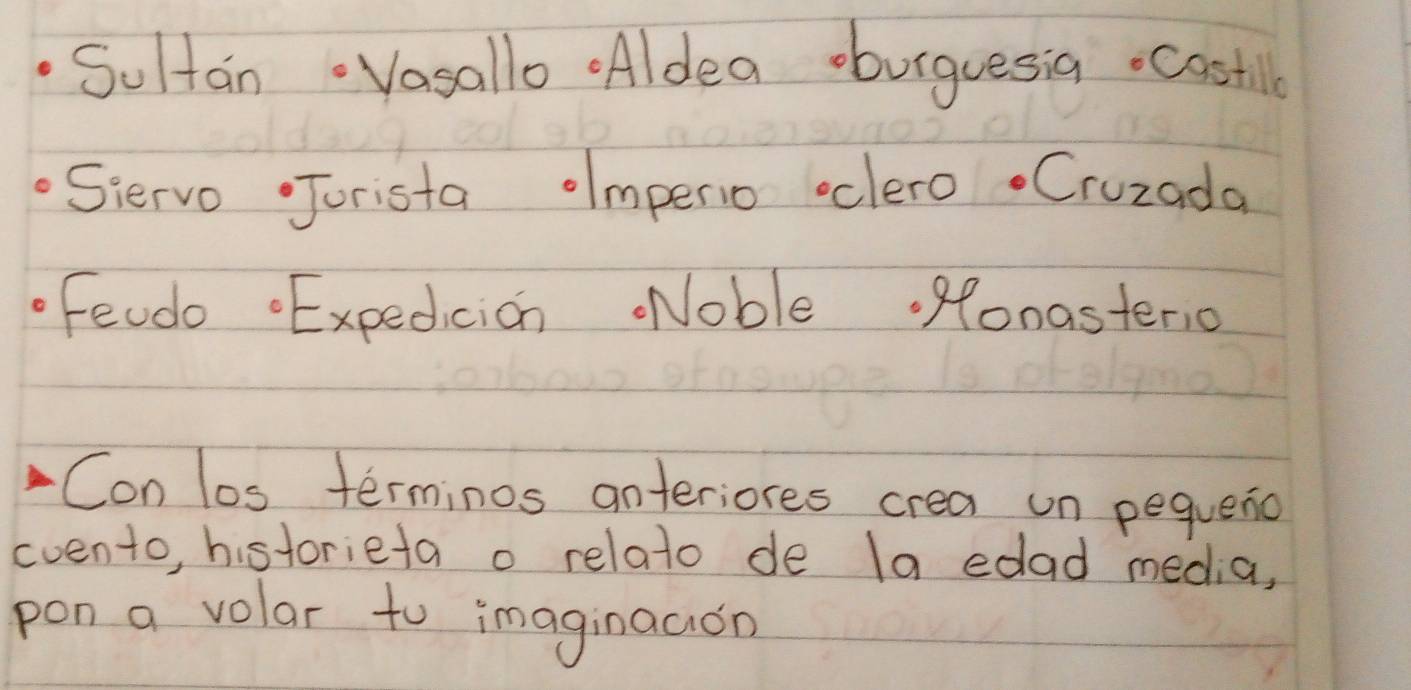 • Sultán • Vasallo • Aldea • burguesia • Castillo
• Siervo • Jurista • Imperio • clero • Cruzada
• Feudo • Expedición • Noble • Monasterio
▸ Con los términos anteriores crea un pequeño
cuento, historieta o relato de la edad media,
pon a volar tu imaginación